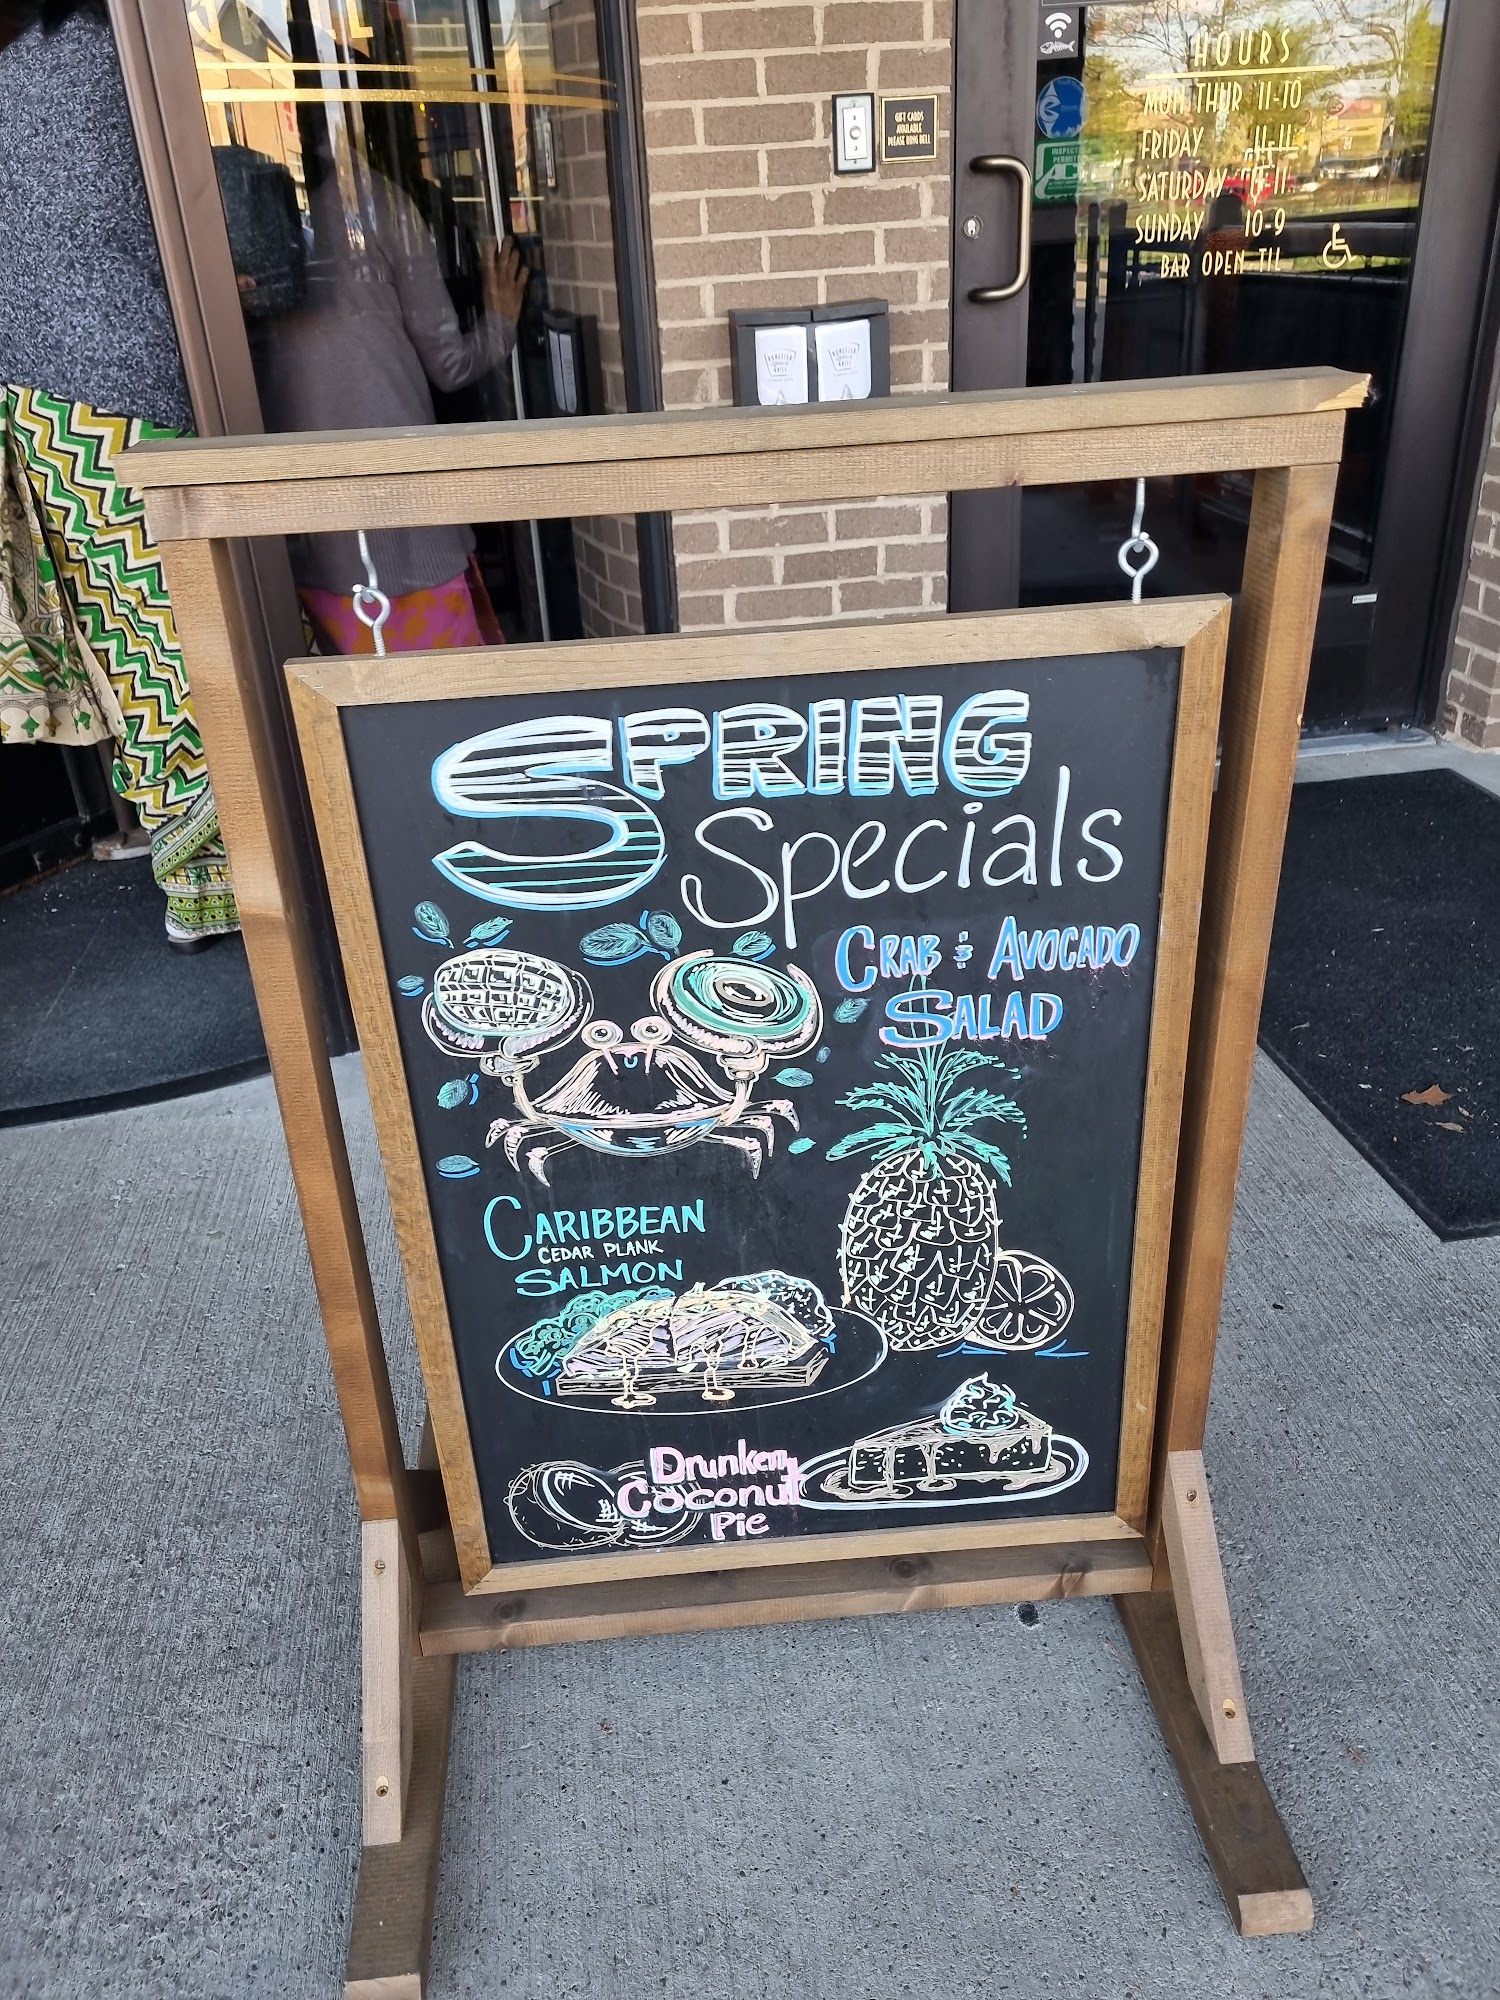 HOURS
MON THUR 11-10
FRIDAY 11-11
SATURDAY
SUNDAY 10-9
BAR OPEN TIL
GIFT CARDS
AVAILABLE
PLEASE RING BELL
BONEFISH
GRILL
BONEFISH
GRILL
SPRING
Specials
CRAB & AVOCADO
SALAD
CARIBBEAN
CEDAR PLANK
SALMON
Drunken
Coconut
Pie